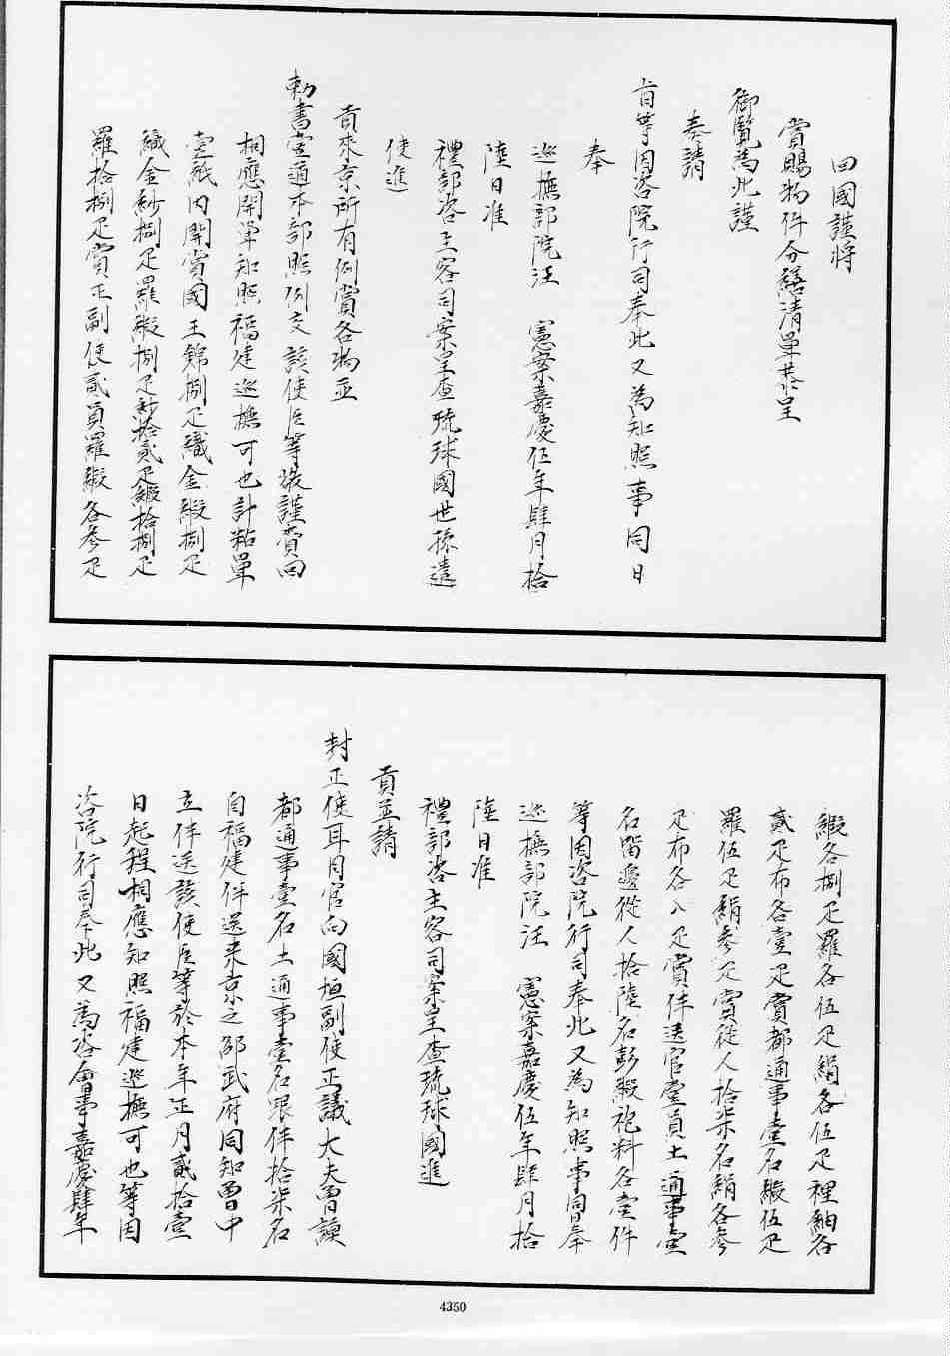 回國謹將
賞賜物件分繕清單恭呈
御覽為此謹
奏請
旨等因咨院行司奉此又為知照事同日
奉
巡撫部院汪　憲案嘉慶伍年肆月拾
陸日准
禮部咨主客司案呈查琉球國世孫遣
使進
貢來京所有例賞各物並
勅書壹道本部照例交該使臣等敬謹賫回
相應開單知照福建巡撫可也計粘單
壹紙內開賞國王錦捌疋織金緞捌疋
織金紗捌疋羅緞捌疋紗拾貳疋緞拾捌疋
羅拾捌疋賞正副使貳員羅緞各參疋
緞各捌疋羅各伍疋絹各伍疋裡紬各
貳疋布各壹疋賞都通事壹名緞伍疋
羅伍疋絹參疋賞從人拾柒名絹各參
疋布各八疋賞伴送官壹員土通事壹
名留邊從人拾陸名彭緞袍料各壹件
等因咨院行司奉此又為知照事同日奉
巡撫部院汪　憲案嘉慶伍年肆月拾
陸日准
禮部咨主客司案呈查琉球國進
貢並請
封正使耳目官向國垣副使正議大夫曾謨
都通事壹名土通事壹名跟伴拾柒名
自福建伴送來京之邵武府同知曾中
立伴送該使臣等於本年正月貳拾壹
日起程相應知照福建巡撫可也等因
咨院行司奉此又為咨會事嘉慶肆年
4350